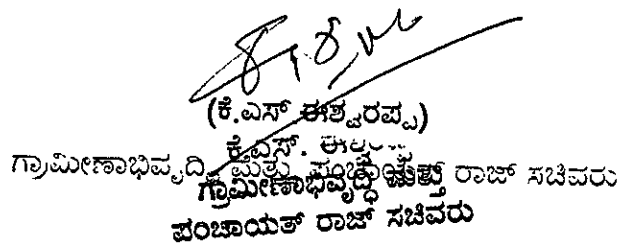 (ಕೆ.ಎಸ್ ಈಶ್ವರಪ್ಪ)
ಕೆ.ಎಸ್. ಈಶ್ವರಪ್ಪ
ಗ್ರಾಮೀಣಾಭಿವೃದ್ಧಿ ಮತ್ತು ಪಂಚಾಯತ್ ರಾಜ್ ಸಚಿವರು
ಗ್ರಾಮೀಣಾಭಿವೃದ್ಧಿ ಮತ್ತು
ಪಂಚಾಯತ್ ರಾಜ್ ಸಚಿವರು